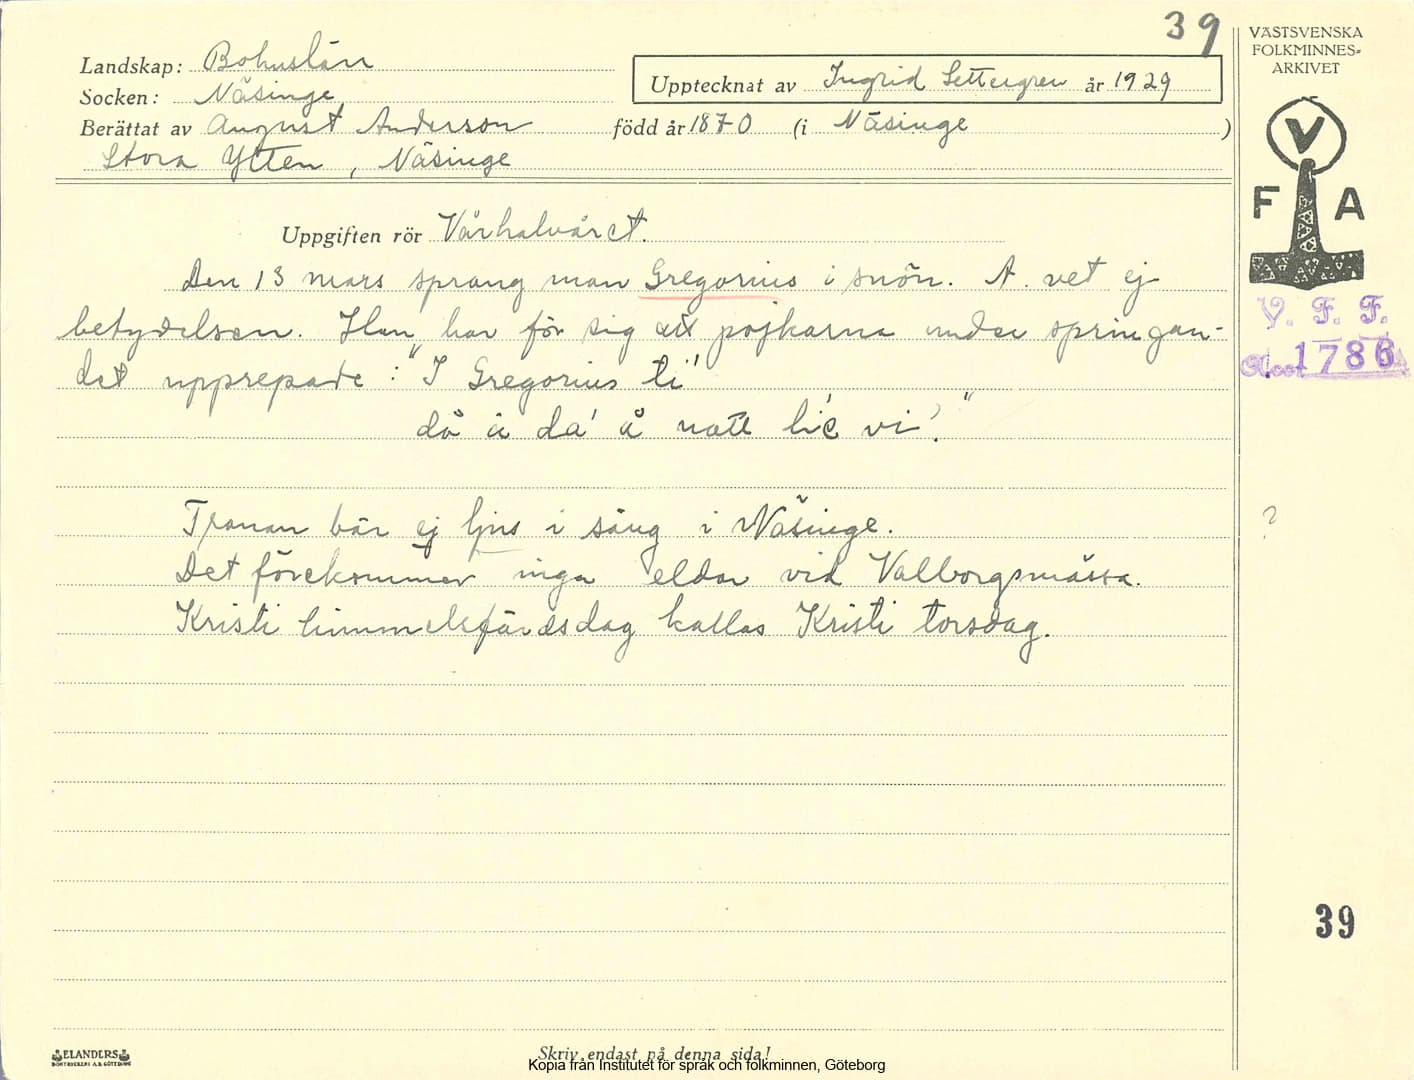 39
Landskap: Bohuslän
Socken: Näsinge
Upptecknat av Ingrid Settergren år 1929
Berättat av August Anderson född år 1870 (i Näsinge)
Stora Ytten, Näsinge
Uppgiften rör Vårhalvåret.
Den 13 mars sprang man Gregorius i snön. A. vet ej
betydelsen. Han har för sig att pojkarna under springan-
det upprepade: "I Gregorius ti'
då ä da' å natt li'e vi'."
Tranan bär ej ljus i säng i Näsinge.
Det förekommer inga eldar vid Valborgsmässa.
Kristi himmelsfärdsdag kallas Kristi torsdag.
VÄSTSVENSKA
FOLKMINNES-
ARKIVET
V
F A
V. F. F.
Acc. 1786
?
39
ELANDERS
BOKTRYCKERI A.B. GÖTEBORG
Skriv endast på denna sida!
Kopia från Institutet för språk och folkminnen, Göteborg